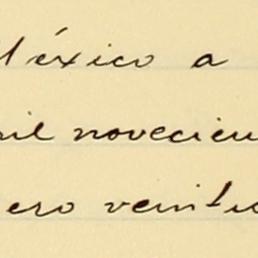 México a
mil novecien
ero veinti